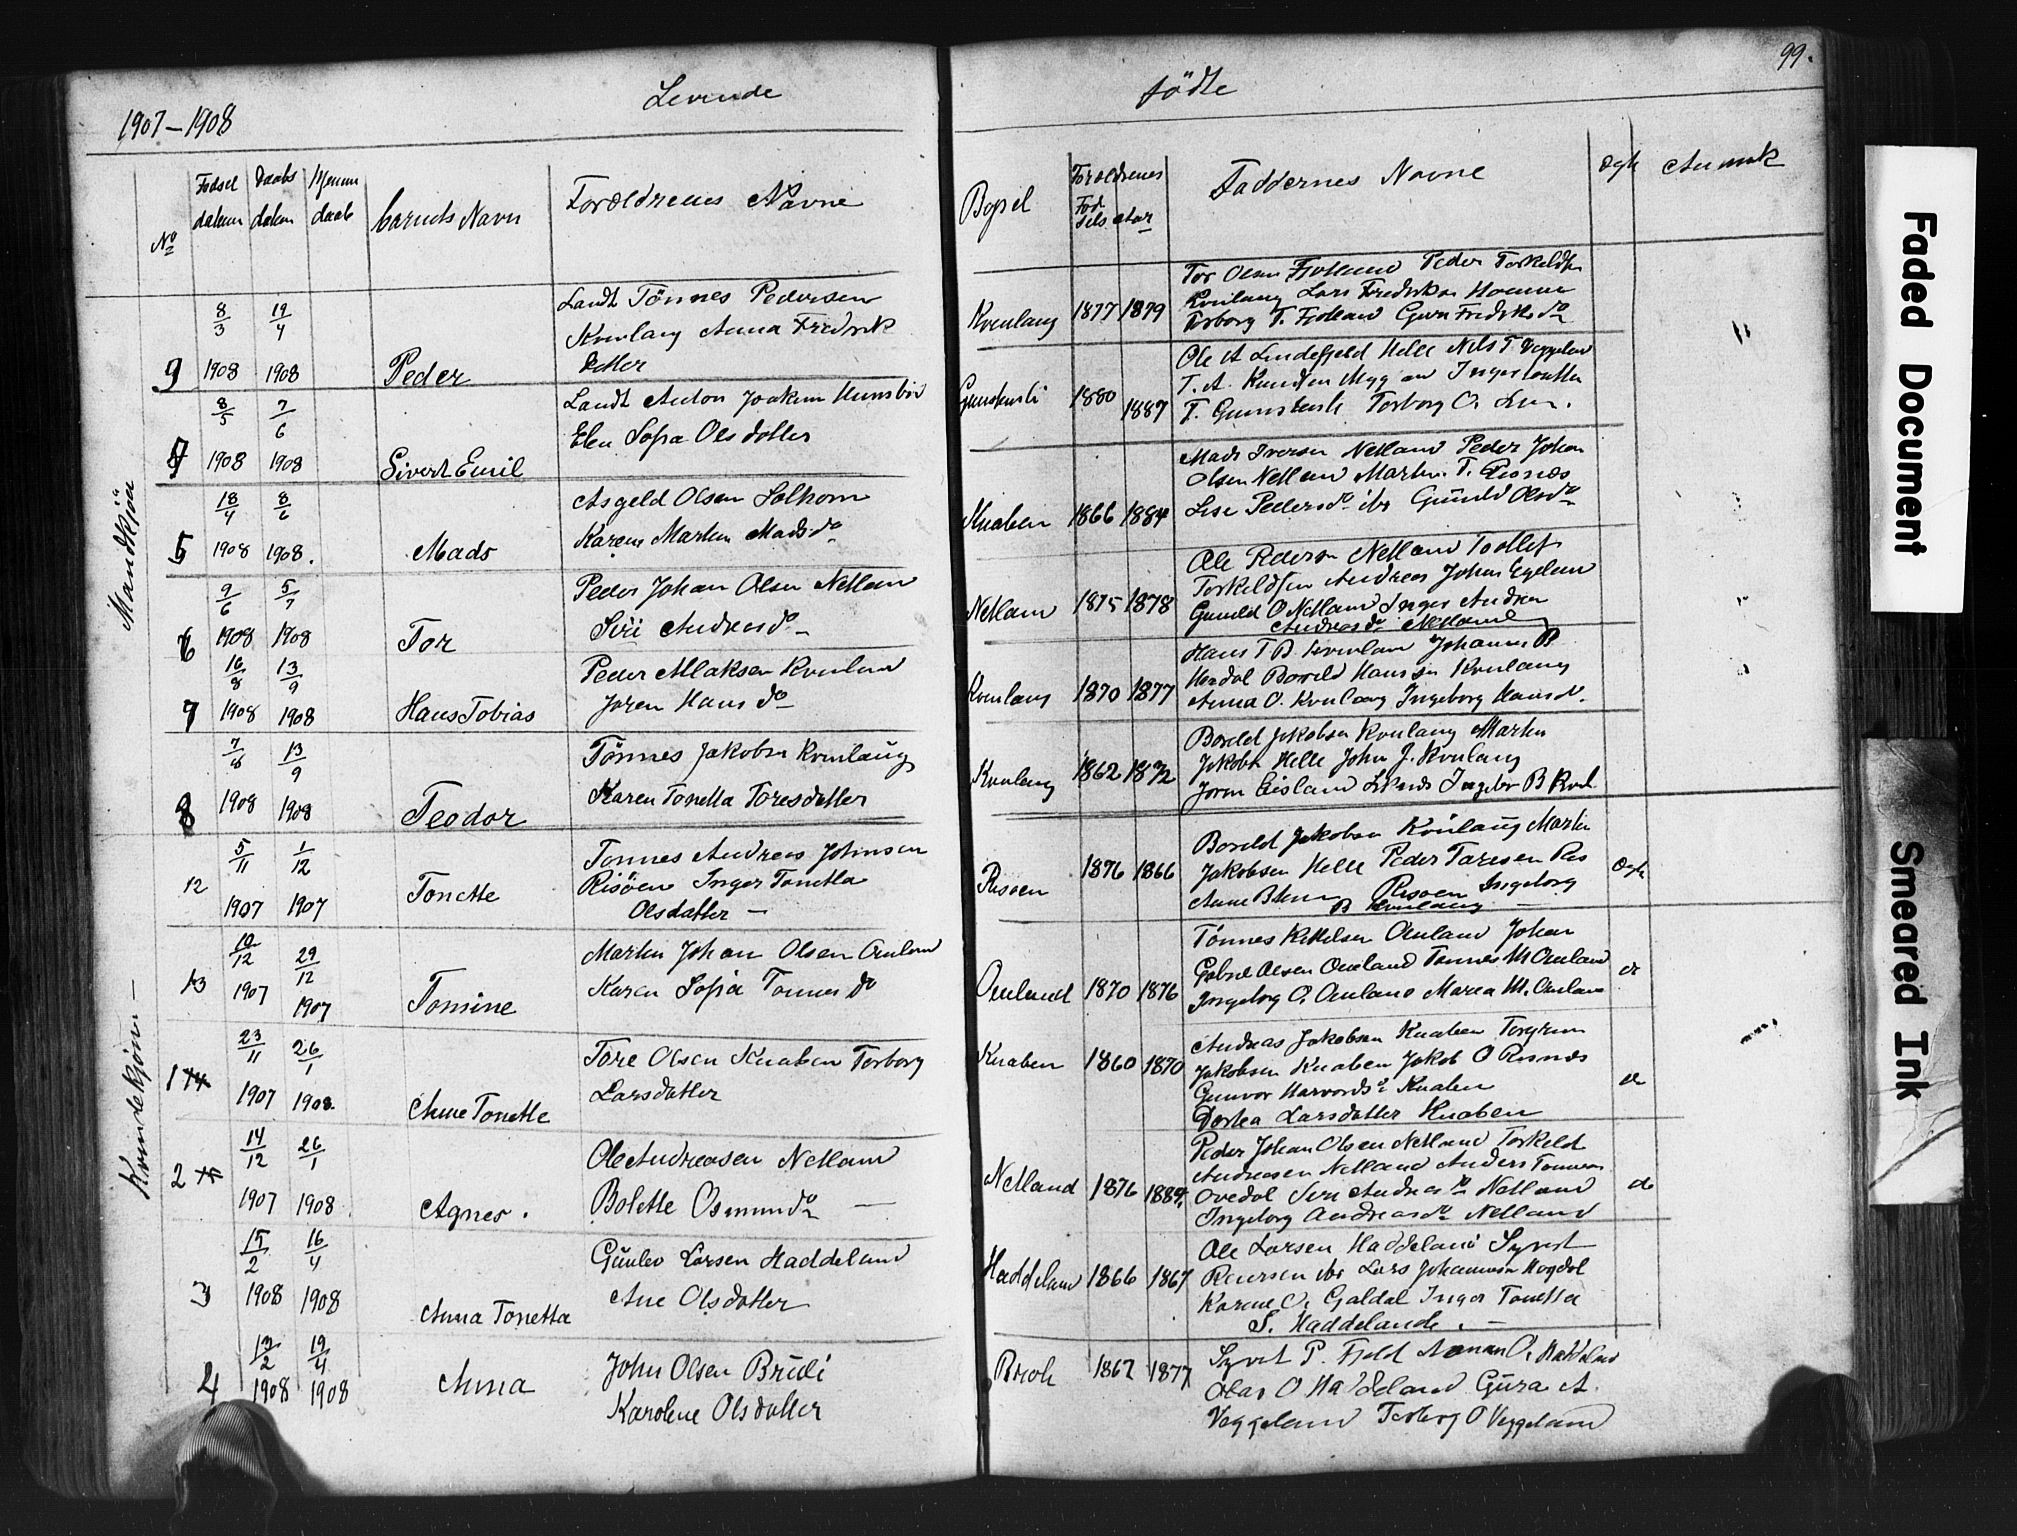 99.
1907-1908
Levende
fødte
No
Fødsel datum
Daabs datum
Hjemme daab
barnets Navn
Forældrenes Navne
Bopel
Forældrenes Fødselsaar
Faddernes Navne
Ægte
Anmerk
Mandkjøn
9
8/3 1908
19/4 1908
Peder
Landt Tønnes Pedersen
Kvenlaug Anna Fredrik
datter
Kvenlaug
1877 1879
Tor Olsen Fjotland Peder Torkeldsen
Kvenlaug Lars Fredriksen
Torborg T. Fjotland Fredriksdo
8/5 1908
7/6 1908
Sivert Emil
Landt Anton Joakim
Elen Sofia Olsdatter
1880 1887
Ole A Lindefjeld Helle Nils T. Veggeland
T. A. Knudsen Inger
T. Torborg O.
5
18/4 1908
8/6 1908.
Mads
Asgeld Olsen Solhom
Karen Martin Madsdo
Knaben
1866 1884
Mads Iversen Netland Peder Johan
Olsen Netland Martin T. Risnes
Lise Pedersdo ibr Gunild Olsdo
6
9/6 1908
5/7 1908
Tor
Peder Johan Olsen Netland
Siri Andreasdo
Netland
1875 1878
Ole Pedersen Netland Toollef
Torkeldsen Andreas Johan
Gunild O Netland Inger Andrea
Andreasdo Netland
7
16/8 1908
13/9 1908
Hans Tobias
Peder Kvenland
Joren Hans do
Kvenlaug
1870 1877
Hans T B. Johannes B
Boreld Hansen Kvenlaug
Anna O. Kvenlaug Ingeborg Hansd.
8
7/8 1908
13/9 1908
Teodor
Tønnes Jakobsen Kvenlaug
Karen Tonetta Toresdatter
Kvenlaug
1862 1872
Boreld Jakobsen Kvenlaug Martin
Jakobsen Helle John J. Kvenlaug
Joren Eisland Ingebor B
Kvindekjøn
12
5/11 1907
1/12 1907
Tonette
Tonnes Andreas Johnsen
Risøen Inger Tonetta
Olsdatter
Risoen
1876 1866
Boreld Jakobsen Kvenlaug Martin
Jakobsen Helle Peder Taresen Ris
Anne B Risoen Ingeborg
B Kvenlaug
Ægte
13
10/12 1907
29/12 1907
Tomine
Martin Johan Olsen Omland
Karen Sofia Tonnes do
Omland
1870 1876
Tønnes Kittelsen Omland Johan
Gabriel Olsen Omland Tønnes M Omland
Ingeborg O. Omland Marea M. Omland
do
1
23/11 1907
26/1 1908.
Anne Tonette
Tore Olsen Knaben Torborg
Larsdatter
Knaben
1860 1870
Andreas Jakobsen Knaben Torgrim
Jakobsen Knaben Jakob O Risnes
Gunvor Knaben
Dortea Larsdatter Knaben
do
2
14/12 1907
26/1 1908
Agnes.
Ole Andreasen Netland
Bolette Osmundo
Netland
1876 1884
Peder Johan Olsen Netland Torkeld
Andreasen Netland Anders Tonnesen
Ovedal Siri Andreasdo Netland
Ingeborg Andreasdo Netland
do
3
15/2 1908
16/4 1908
Anna Tonetta
Gunlev Larsen Haddeland
Ane Olsdatter
Haddeland
1866 1867
Ole Larsen Haddeland Syvert
ibr Lars Johannesen
Karene O. Galdal Inger Tonetta
S. Haddelande.
4
13/2 1908
19/4 1908
Anna
John Olsen Brüdi
Karoline Olsdatter
1862 1877
Syvert P. Fjeld O. Haddeland
Olav O Haddeland Gura A.
Veggeland Torborg O Veggeland
Faded Document
Smeared Ink